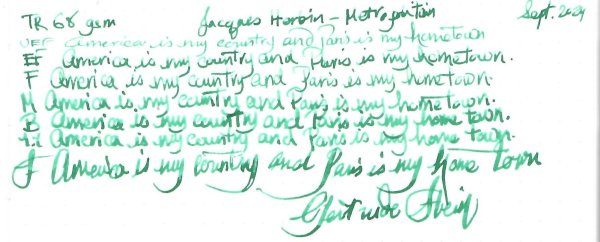 TR 68 gsm Jacques Herbin - Metropolitan Sept. 2024
UEF America is my country and Paris is my hometown
EF America is my country and Paris is my hometown.
F America is my country and Paris is my hometown.
M America is my country and Paris is my hometown.
B America is my country and Paris is my home town.
1.1 America is my country and Paris is my home town.
F America is my country and Paris is my home town
Gertrude Stein